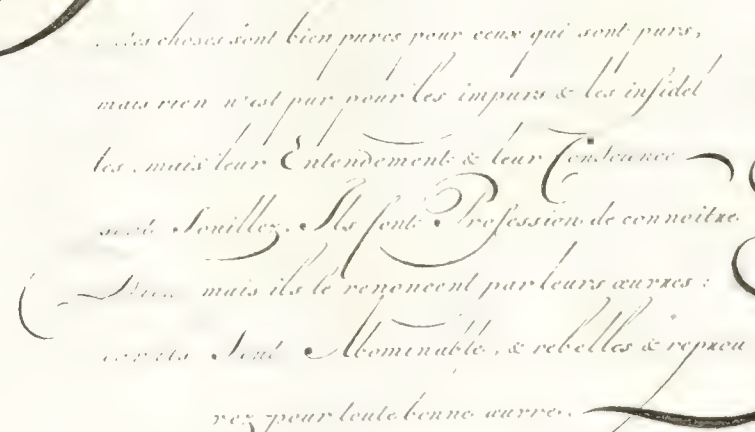 choses sont bien pures pour ceux qui sont purs,
mais rien n'est pur pour les impurs & les infidel
les. mais leur Entendement & leur Conscience
sont Souillez. Ils font Profession de connoitre
Dieu mais ils le renoncent par leurs œuvres :
Sont Abominable, & rebelles & reprou
vez pour toute bonne œuvre.